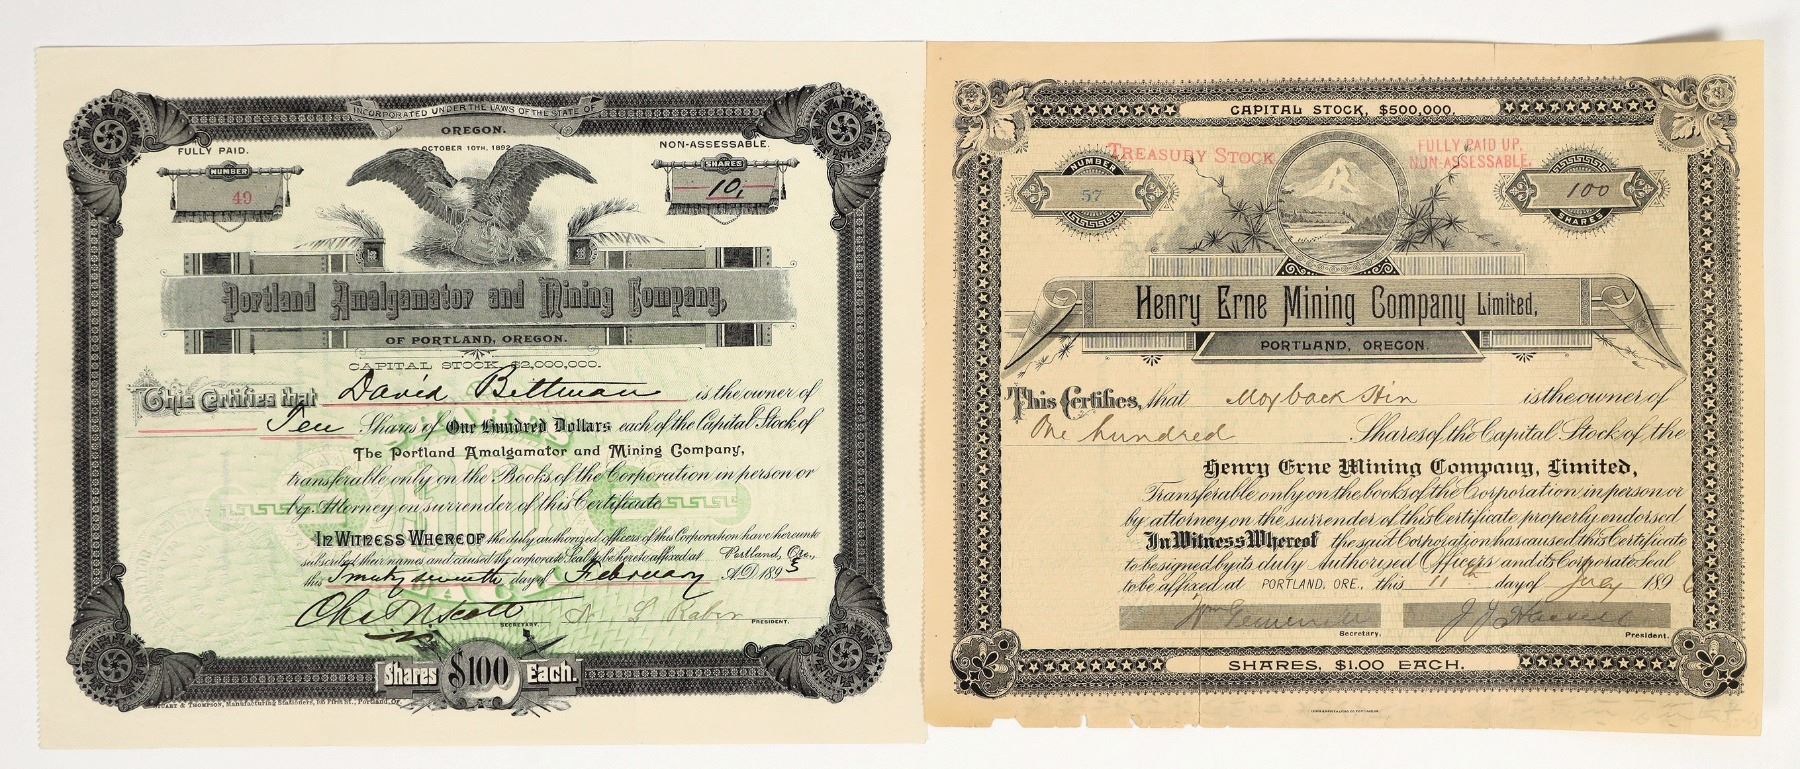 INCORPORATED UNDER THE LAWS OF THE STATE OF
OREGON.
FULLY PAID.
OCTOBER 10TH, 1892
NON-ASSESSABLE.
NUMBER
49
SHARES
10,
Portland Amalgamator and Mining Company,
OF PORTLAND, OREGON.
CAPITAL STOCK $2,000,000.
This Certifies that David Bettman is the owner of
Ten Shares of One Hundred Dollars each of the Capital Stock of
The Portland Amalgamator and Mining Company,
transferable only on the Books of the Corporation in person or
by Attorney on surrender of this Certificate
SHARES
$100
EACH
IN WITNESS WHEREOF the duly authorized officers of this Corporation have hereunto
subscribed their names and caused the corporate Seal to be hereto affixed at Portland, Ore.,
this Twenty seventh day of February A.D. 1893
SECRETARY.
PRESIDENT.
Shares $100 Each.
& THOMPSON, Manufacturing Stationers, First St., Portland, Or.
CAPITAL STOCK, $500,000.
TREASURY STOCK
FULLY PAID UP.
NON-ASSESSABLE.
NUMBER
57
100
SHARES
Henry Erne Mining Company Limited,
PORTLAND, OREGON.
This Certifies, that is the owner of
One hundred Shares of the Capital Stock of the
Henry Erne Mining Company, Limited,
Transferable only on the books of the Corporation in person or
by attorney on the surrender of this Certificate properly endorsed
In Witness Whereof the said Corporation has caused this Certificate
to be signed by its duly Authorised Officers and its Corporate Seal
to be affixed at PORTLAND, ORE., this 11th day of July 1896
Secretary.
President.
SHARES, $1.00 EACH.